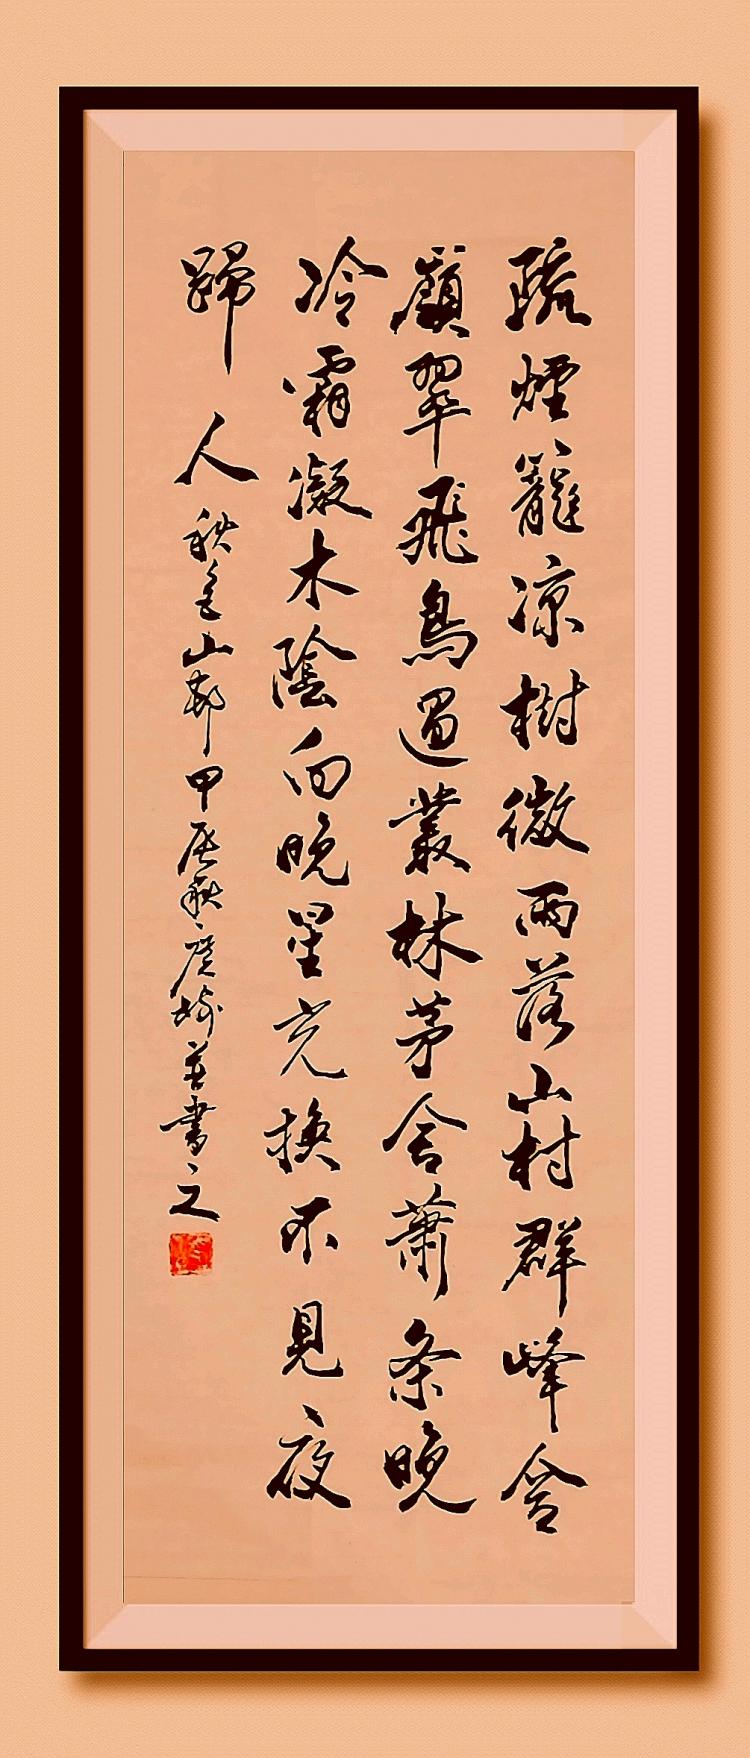 疏煙籠凉樹微雨落山村群峰含
翠飛鳥過叢林茅舍蕭条晚
冷霜凝木陰向晚星光換不見夜
歸人 秋色山邨甲辰秋廣並書之